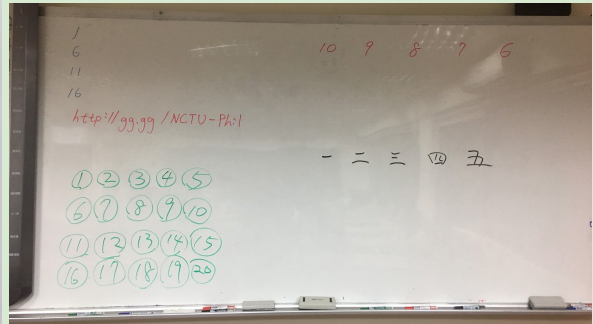 1
6
11
16
http://gg.gg/NCTU-Phil
10 9 8 7 6
一 二 三 四 五
① ② ③ ④ ⑤
⑥ ⑦ ⑧ ⑨ ⑩
⑪ ⑫ ⑬ ⑭ ⑮
⑯ ⑰ ⑱ ⑲ ⑳